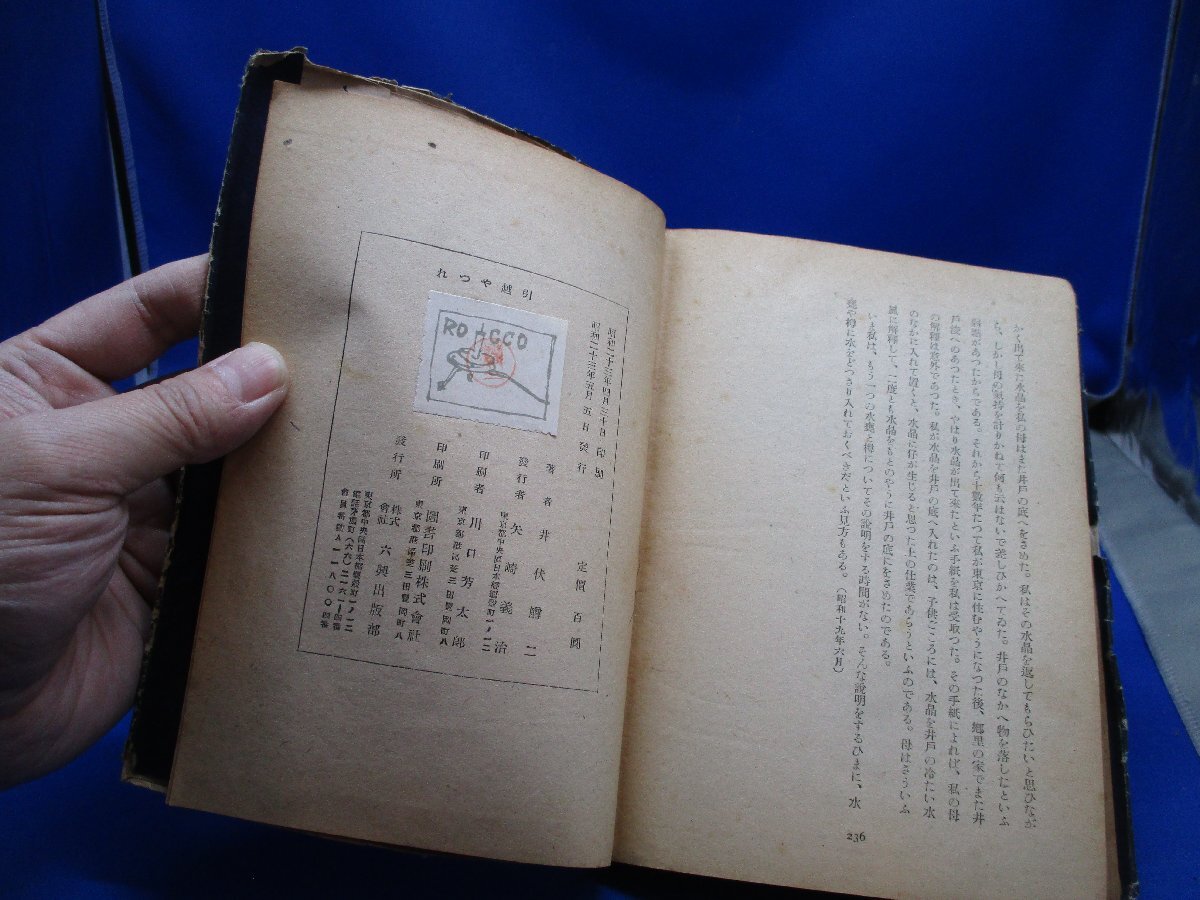 かく出て來た水晶を私の母はまた井戸の底へをさめた。私はその水晶を返してもらひたいと思ひなが
ら、しかし母の氣持を計りかねて何も云はないで差しひかへてゐた。井戸のなかへ物を落したといふ
があつたからである。それから十數年たつて私が東京に住むやうになつた後、郷里の家でまた井
戸浚へのあつたとき、やはり水晶が出て來たといふ手紙を私は受取つた。その手紙によれば、私の母
の解釋は意外であつた。私が水晶を井戸の底へ入れたのは、子供ごころには、水晶を井戸の冷たい水
のなかに入れて置くと、水晶に仔が生じると思つた上の仕業であらうといふのである。母はさういふ
風に解釋して、二度とも水晶をもとのやうに井戸の底にをさめたのである。
いま私は、もう一つの水甕と栂についてゐの説明をする時間がない。そんな説明をするひまに、水
甕や栂に水をどつさり入れておくべきだといふ見方もある。（昭和十九年六月）
236
引越やつれ
ROCCO
昭和二十三年四月三十日 印刷
昭和二十三年五月五日 發行
定價 百圓
著者 井伏鱒二
發行者 矢崎義治
東京都中央區日本橋 町一ノ一二
印刷者 川口芳太郎
東京都港區芝三田豐岡町八
印刷所 圖書印刷株式會社
東京都港區芝三田豐岡町八
發行所 株式會社 六興出版部
東京都中央區日本橋 町一ノ一二
電話茅場町(六六)二一六一―四番
會員番號A一一八〇〇四番